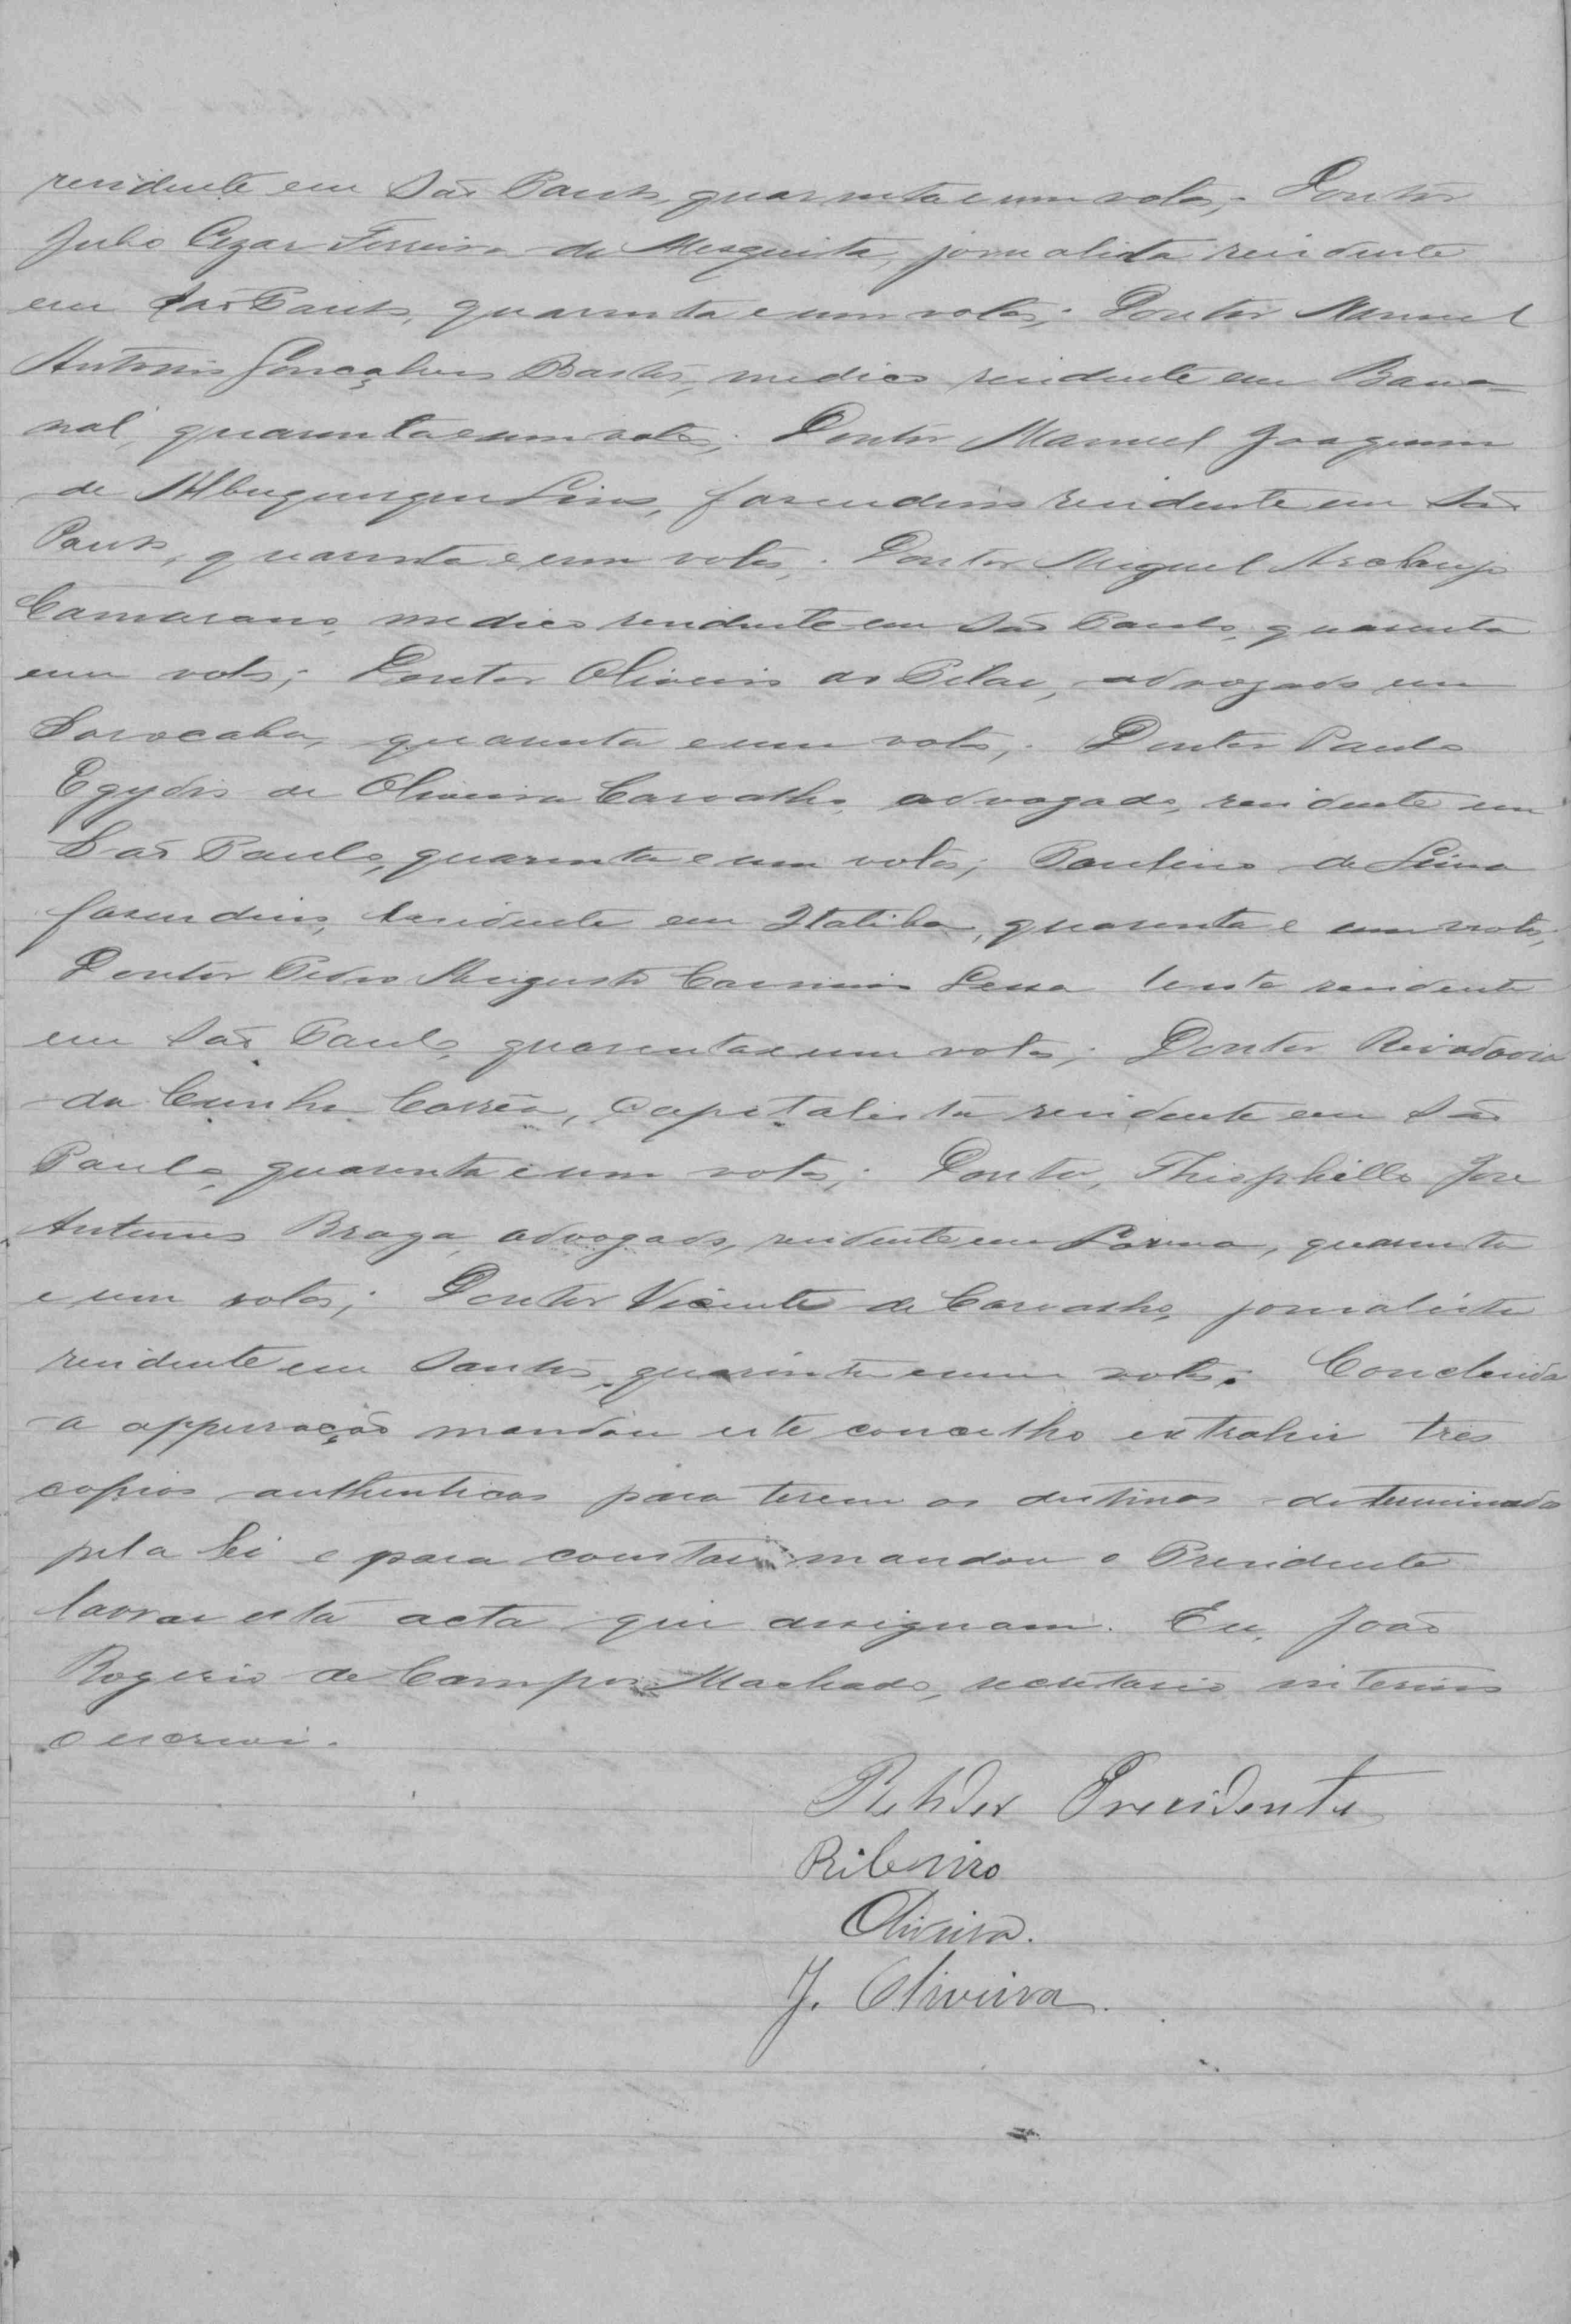 residente em São Paulo, quarenta e um votos; Doutor
Julio Cezar Ferreira de Mesquita, jornalista residente
em São Paulo, quarenta e um votos; Doutor Manuel
Antonio Gonçalves Bastos, medico residente em Bana-
nal, quarenta e um votos; Doutor Manuel Joaquim
de Albuquerque Lins, fasendeiro residente em São
Paulo, quarenta e um votos; Doutor Miguel Archanjo
Camarano, medico residente em São Paulo, quarenta
e um votos; Doutor Oliveira do Pilar, advogado em
Sorocaba, quarenta e um votos; Doutor Paulo
Egydio de Oliveira Carvalho, advogado, residente em
São Paulo, quarenta e um votos; Paulino de Lima
fasendeiro, residente em Itatiba, quarenta e um votos;
Doutor Pedro Augusto Carneiro Lessa lente residente
em São Paulo, quarenta e um votos; Doutor Rivadavia
da Cunha Corrêa, capitalista residente em São
Paulo, quarenta e um votos; Doutor, Theophillo José
Antunes Braga, advogado, residente em Lorena, quarenta
e um votos; Doutor Vicente de Carvalho, jornalista
residente em Santos, quarenta e um votos. Concluida
a appuração mandou este concelho extrahir tres
copias authenticas para terem os destinos determinados
pela lei e para constar mandou o Presidente
lavrar esta acta que assignam. Eu, João
Rogerio de Campos Machado, secretario interino
o escrevi.
Rehder Presidente
Ribeiro
Oliveira.
J. Oliveira.